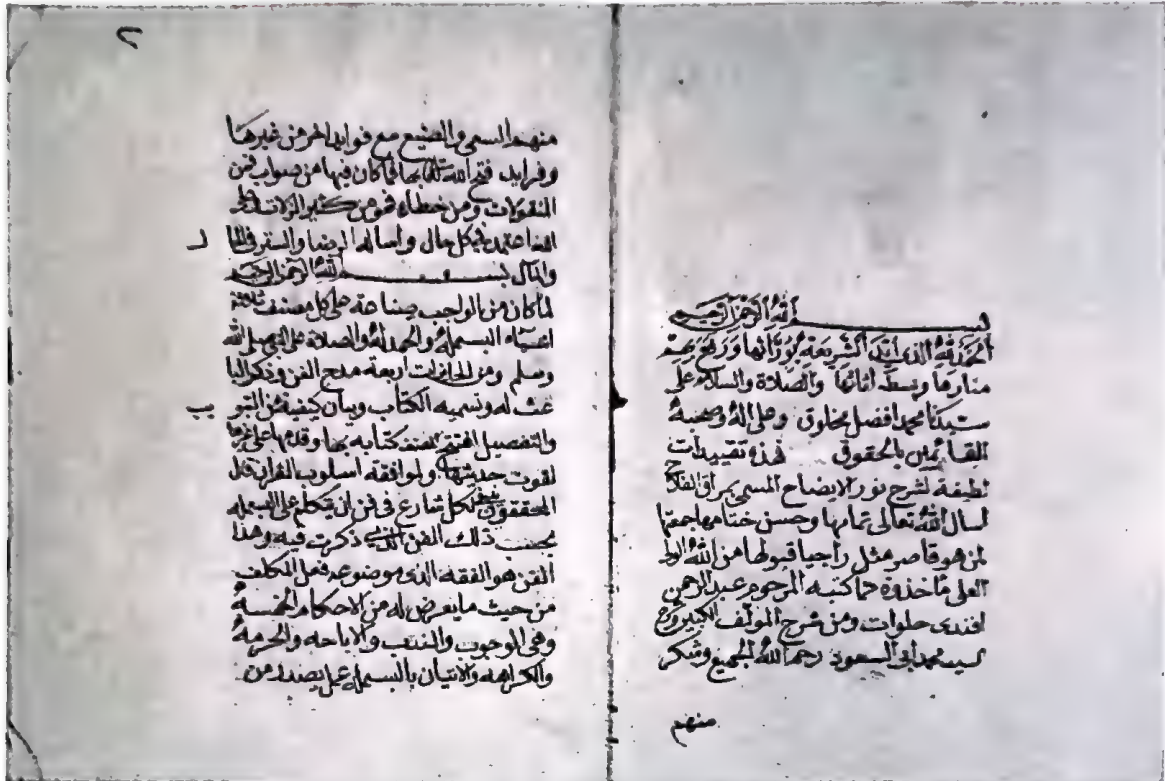 بسم الله الرحمن الرحيم
الحمد لله الذي أيد الشريعة بورّاثها ورفع بهم
منارها وبسط أثاثها والصلاة والسلام على
سيدنا محمد افضل مخلوق وعلى آله وصحبه
القائمين بالحقوق هذه تقييدات
لطيفة لشرح نور الايضاح المسمى بمراقي الفلاح
اسال الله تعالى تمامها وحسن ختامها جمعتها
لمن هو قاصر مثلي راجيا قبولها من الله
العلي ماخذة مما كتبه المرحوم عبد الرحمن
افندى خلوات ومن شرح المؤلف الكبير و
السيد محمد ابى السعود رحم الله الجميع وشكر
منهم
٢
منهم السعي والصنيع مع فوايد اخر من غيرها
وفرايد فتح الله تعالى بها فما كان فيها من صواب فمن
المنقولات ومن خطاء فهو من كثير الزلات
الله اعتمد في كل حال واساله الرضا والستر في الحال
والمآل بسم الله الرحمن الرحيم
لما كان من الواجب صناعة على كل مصنف ثلاثة
اشياء البسملة والحمدلة والصلاة على النبي صلى الله
وسلم ومن الجائزات اربعة مدح الفن وذكر البا
عث له وتسمية الكتاب وبيان كيفيته من التبو
يب
والتفصيل افتتح المصنف كتابه بها وقدمها على غيرها
لقوت حديثها ولموافقة اسلوب القران قال
المحققون ينبغي لكل شارع في فن ان يتكلم على البسملة
بجنب ذلك الفن الذي ذكرت فيه وهذا
الفن هو الفقه الذى موضوعه فعل المكلف
من حيث ما يعرض له من الاحكام الخمسة
وهي الوجوب والندب والاباحه والحرمة
والكراهه والاتيان بالبسملة عمل يصدر من